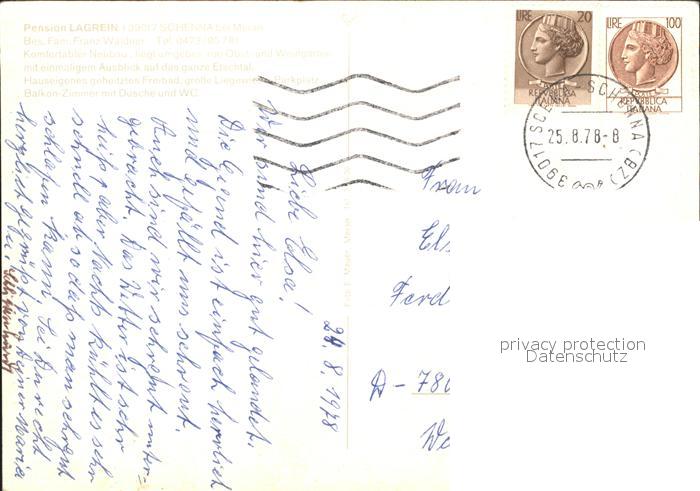 Pension LAGREIN I 39017 SCHENNA bei Meran
Bes. Fam. Franz Waldner Tel. 0473/95
Komfortabler Neubau, liegt umgeben von Obst- und Weingärten
mit einmaligem Ausblick auf das ganze Etschtal.
Hauseigenes geheiztes Freibad, große Liegewiese, Parkplatz.
Balkon-Zimmer mit Dusche und WC.
LIRE 20
REPUBBLICA
ITALIANA
LIRE 100
REPUBBLICA
ITALIANA
39017 SCHENNA (BZ)
25.8.78-8
24.8.1978
Liebe Elsa!
Wir sind hier gut gelandet.
Die Gegend ist einfach herrlich
und gefällt uns sehr gut.
Auch sind wir sehr gut unter=
gebracht. Das Wetter ist sehr
heiß aber Nachts kühlt es sehr
schnell ab so daß man sehr gut
schlafen kann. Sei Du recht
herzlich gegrüßt von Deiner Maria
Frau
Els
Ferd
D-780
privacy protection
Datenschutz